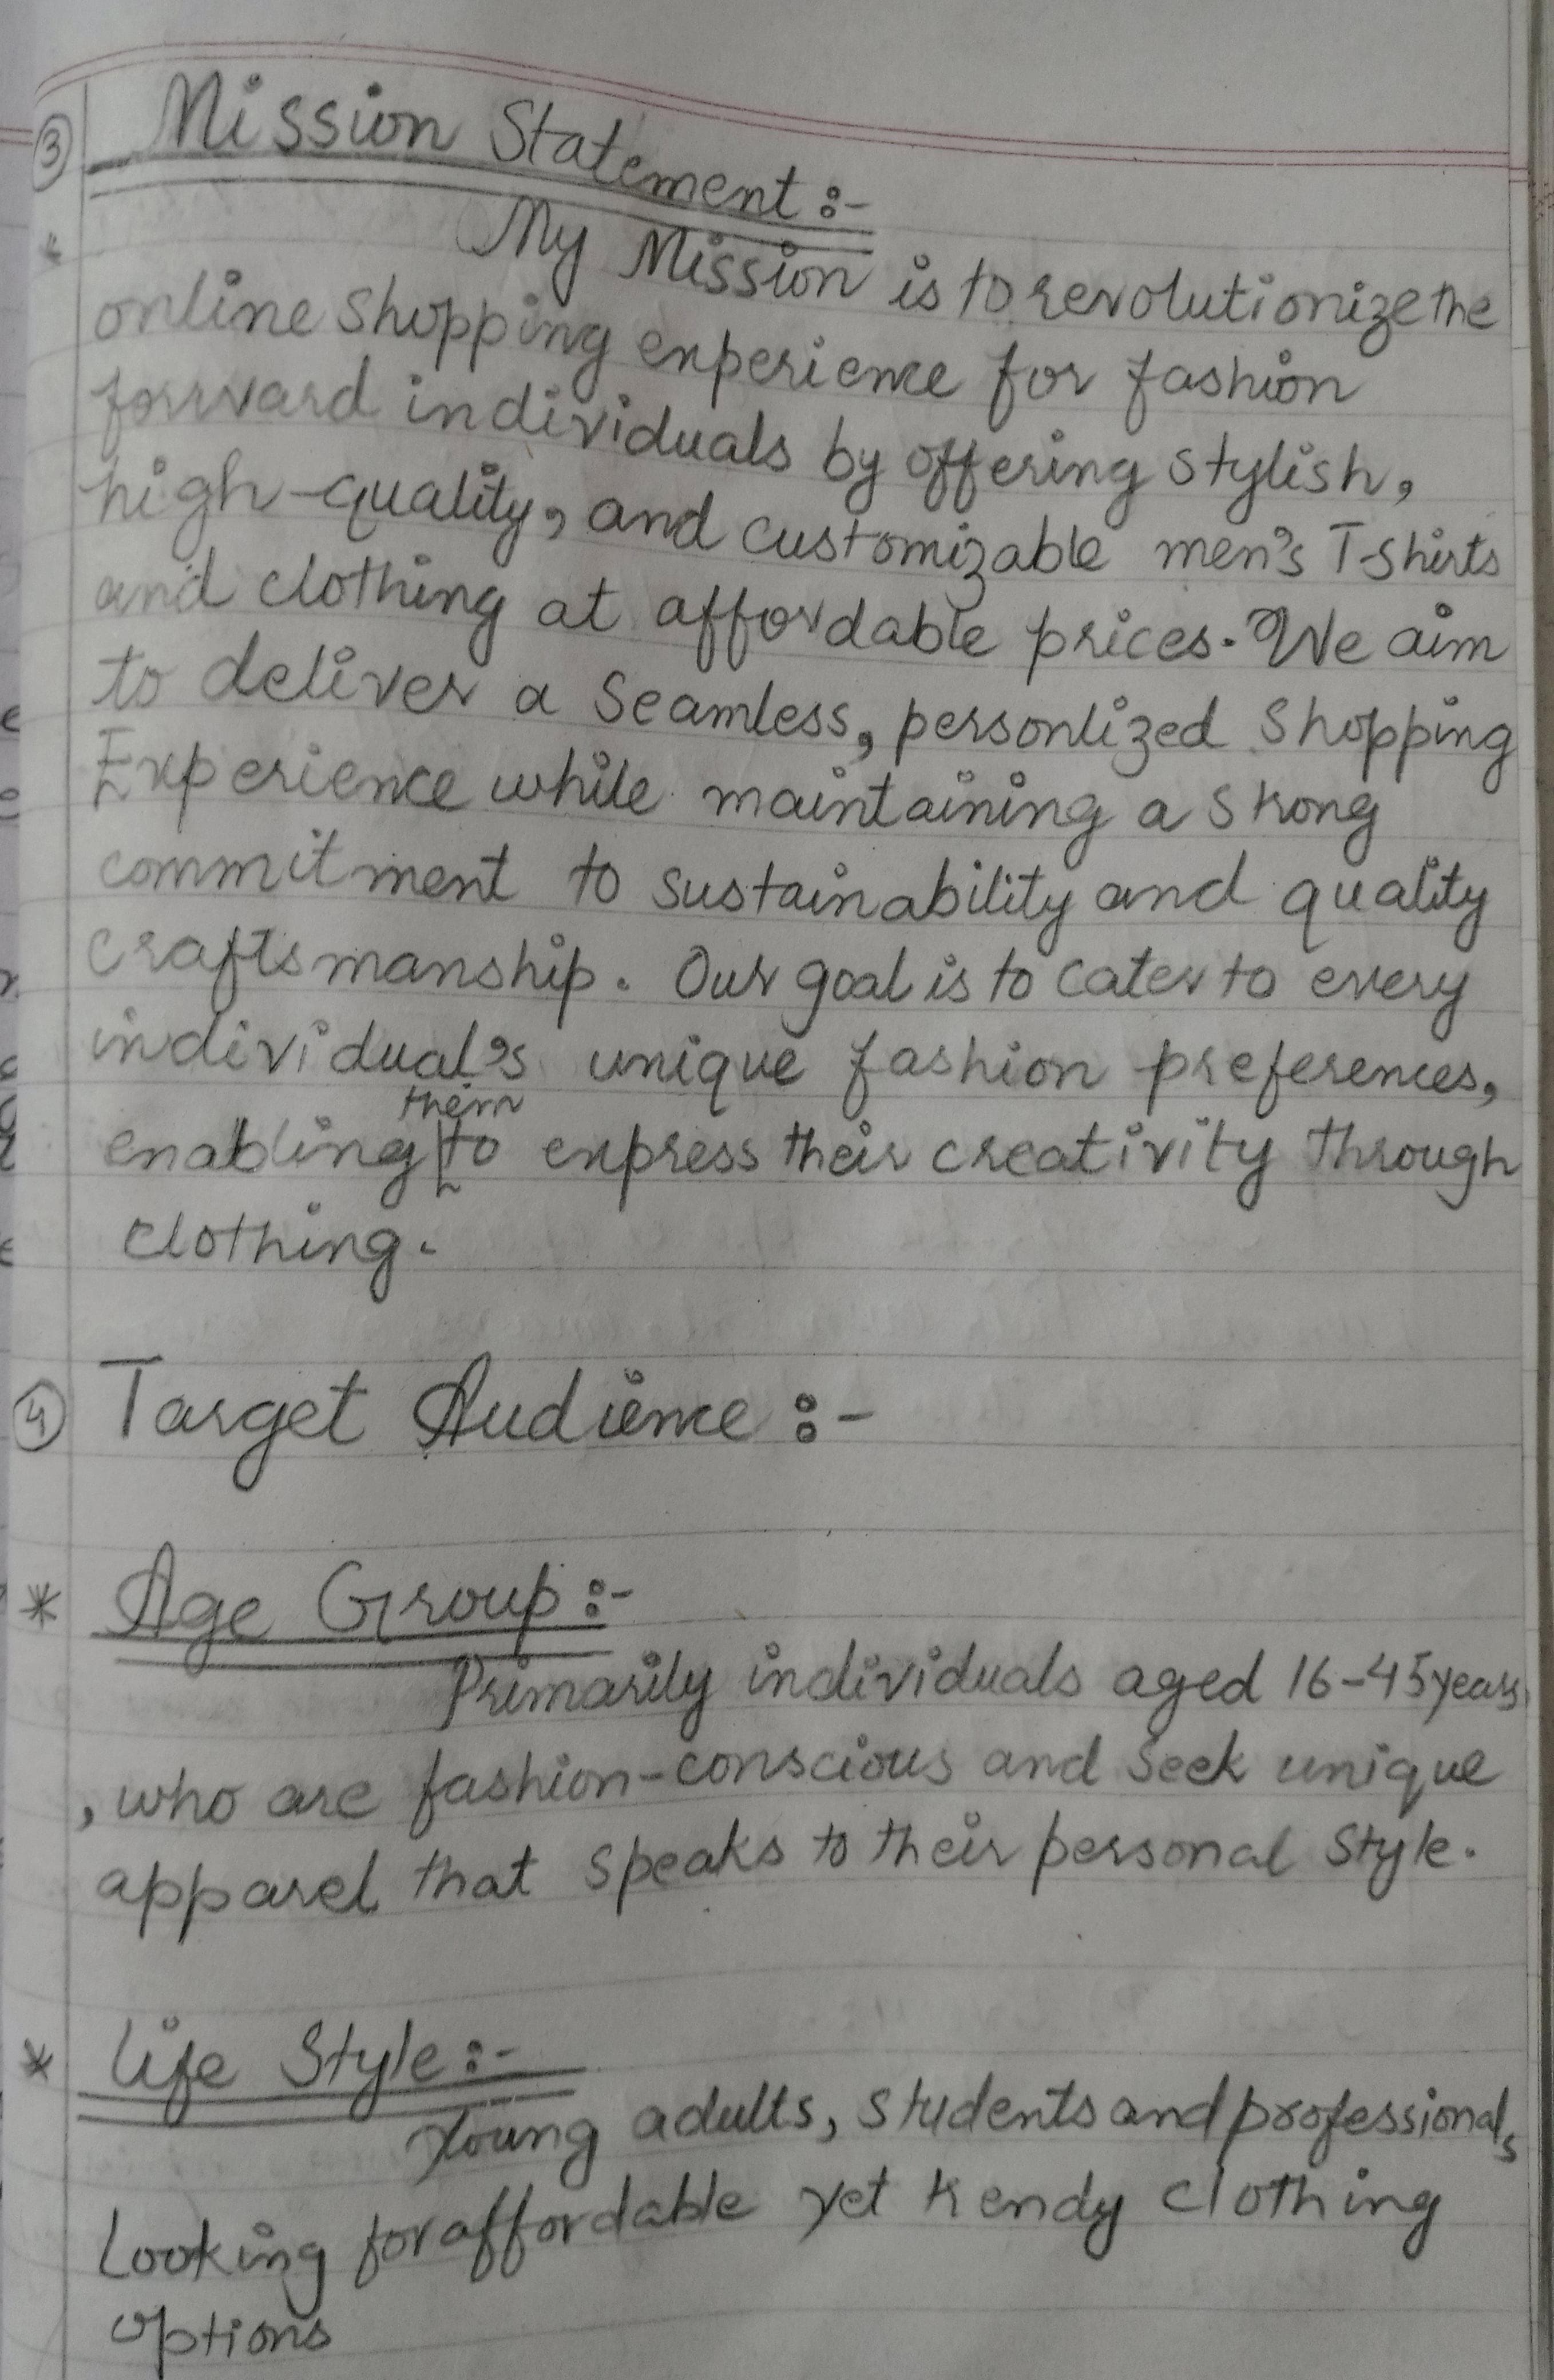 ③ Mission Statement :-
* My Mission is to revolutionize the
online shopping experience for fashion
forward individuals by offering stylish,
high-quality, and customizable men's T-shirts
and clothing at affordable prices. We aim
to deliver a seamless, personlized shopping
Experience while maintaining a strong
commitment to sustainability and quality
craftsmanship. Our goal is to cater to every
individual's unique fashion preferences,
them
enabling to express their creativity through
clothing.
④ Target Audience :-
* Age Group :-
Primarily individuals aged 16-45 years
, who are fashion-conscious and seek unique
apparel that speaks to their personal style.
* Life Style :-
Young adults, students and professionals
Looking for affordable yet trendy clothing
options